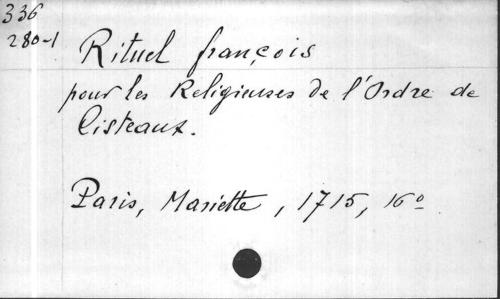 336
280-1
Rituel françois
pour les Religieuses de l'Ordre de
Cisteaux.
Paris, Mariette, 1715, 16º